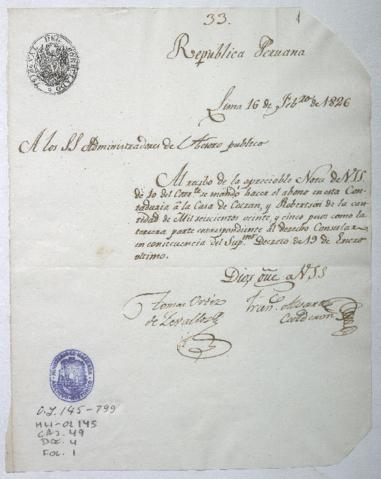 33.
1
Republica Peruana
Lima 16 de Febro. de 1826
A los SS Administradores de Thesoro publico
Al recibo de la apreciable Nota de VSS
de 10 del Corrte. se mandó hacer el abono en esta Con-
taduria à la Casa de Cochran, y Robertson de la can-
tidad de Mil seiscientos veinte, y cinco pesos como la
tercera parte correspondiente al derecho Consular
en concecuencia del Supmo. Decreto de 19 de Enero
ultimo.
Dios gue. a VSS
Tomas Ortiz Fran.co Alvarez
de Zevallos Calderon
O.L. 145-799
MH-OL 145
CAJ. 49
DOC. 4
FOL. 1